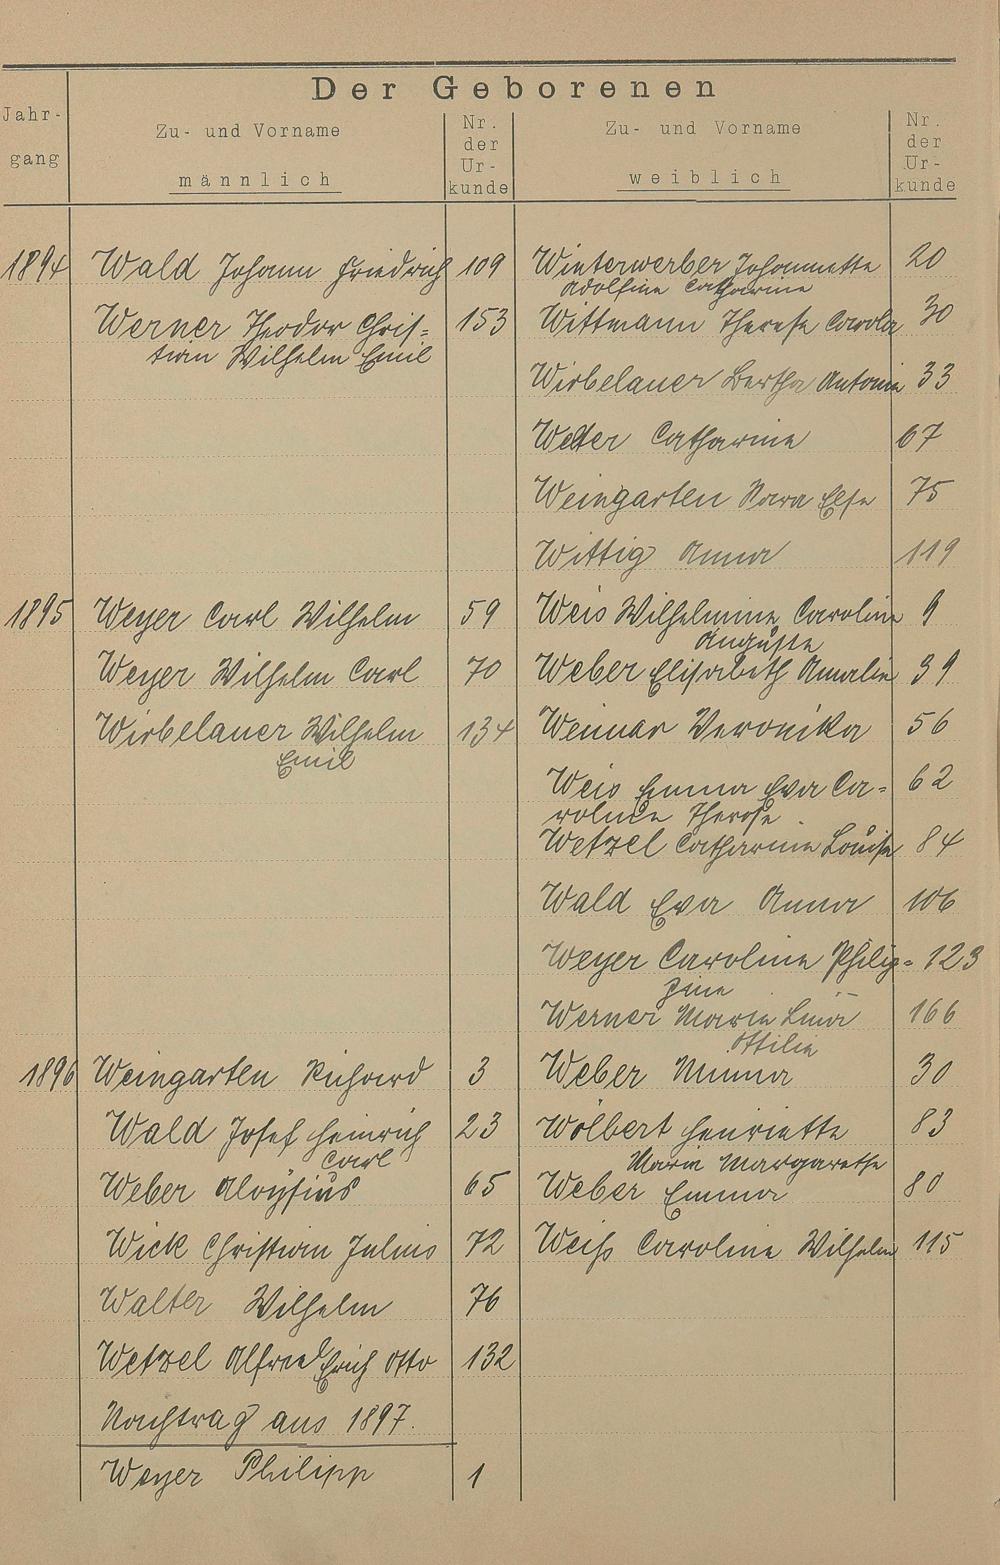 Der Geborenen
Jahr-
gang
Zu- und Vorname
männlich
Nr.
der
Ur-
kunde
Zu- und Vorname
weiblich
Nr.
der
Ur-
kunde
1894 Wald Johann Friedrich 109 Winterwerber Johannette 20
Adolfine Catharine
Werner Theodor Chris= 153 Wittmann Therese Carola 30
tian Wilhelm Emil
Wirbelauer Bertha Antonie 33
Weller Catharine 67
Weingarten Klara Else 75
Wittig Anna 119
1895 Weyer Carl Wilhelm 59 Weis Wilhelmine Caroline 9
Auguste
Weyer Wilhelm Carl 70 Weber Elisabeth Amalie 39
Wirbelauer Wilhelm 134 Weimar Veronika 56
Emil
Weis Emma Eva Ca= 62
roline Therese
Wetzel Catharine Louise 84
Wald Eva Anna 106
Weyer Caroline Philip= 123
pine
Werner Maria Lina 166
Ottilie
1896 Weingarten Richard 3 Weber Minna 30
Wald Josef Heinrich 23 Wölbert Henriette 83
Carl Maria Margarethe
Weber Aloysius 65 Weber Emma 80
Wick Christian Julius 72 Weiß Caroline Wilhelm 115
Walter Wilhelm 76
Wetzel Alfred Erich Otto 132
Nachtrag aus 1897.
Weyer Philipp 1